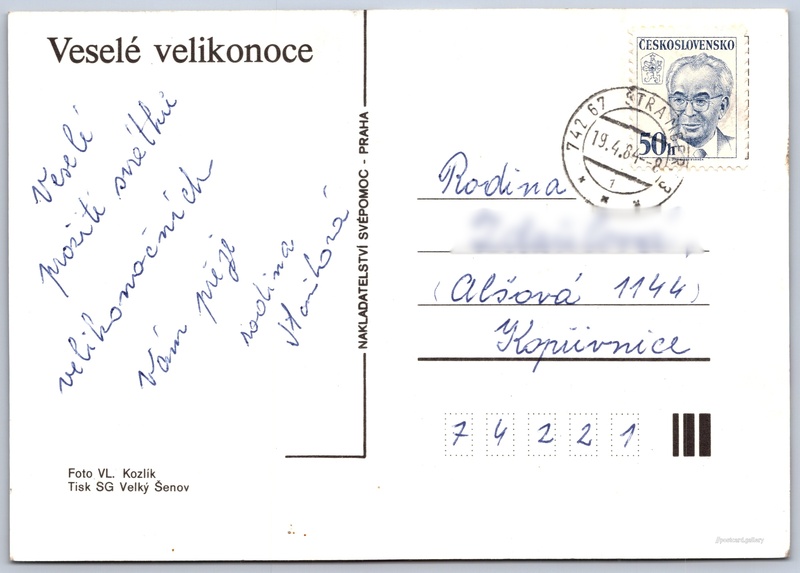 Veselé velikonoce
Veselé
prožití svátků
velikonočních
Vám přeje
rodina
ČESKOSLOVENSKO
50h
742 67 ŠTRAMBERK
19.4.84-8
1
Rodina
(Alšová 1144)
Kopřivnice
7 4 2 2 1
NAKLADATELSTVÍ SVÉPOMOC - PRAHA
Foto VL. Kozlík
Tisk SG Velký Šenov
//postcard.gallery